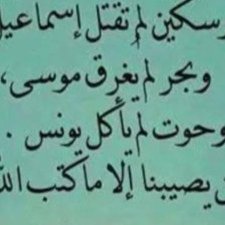 وسكين لم تقتل إسماعيل
وبحر لم يغرق موسى،
وحوت لم يأكل يونس .
يصيبنا إلا ما كتب